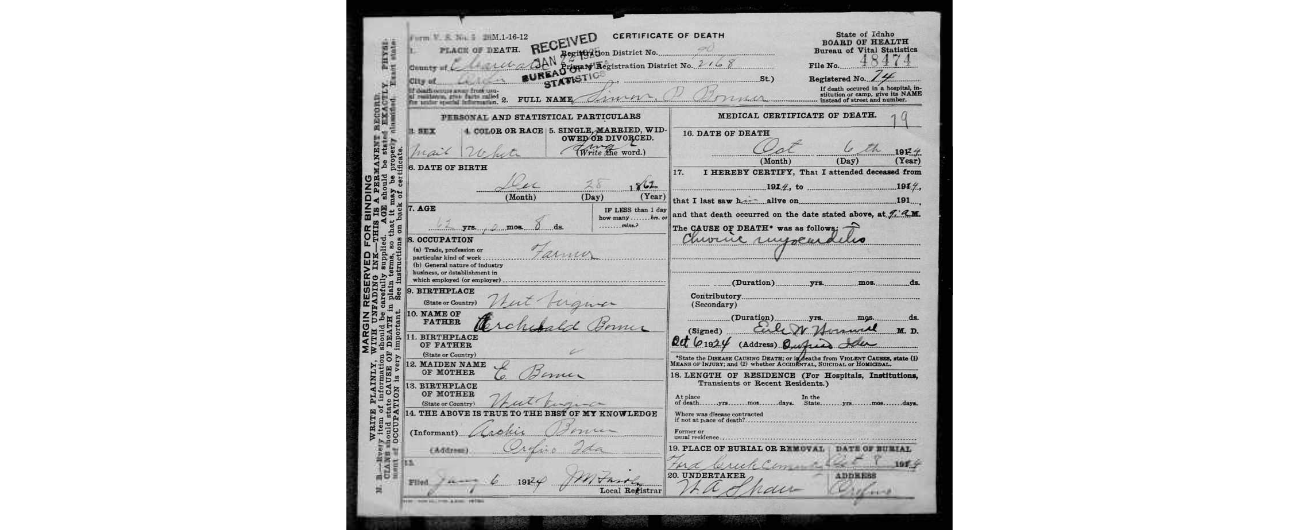 Form V. S. No. 5 28M.1-16-12
CERTIFICATE OF DEATH
State of Idaho
BOARD OF HEALTH
Bureau of Vital Statistics
File No. 48474
Registered No. 74
If death occurred in a hospital, in-
stitution or camp, give its NAME
instead of street and number.
RECEIVED
JAN 22 192
BUREAU OF VITAL
STATISTICS
1. PLACE OF DEATH.
County of Clearwater
City of
If death occurs away from usu-
al residence, give facts called
for under special information.
Registration District No.
Primary Registration District No. 2168
St.)
2. FULL NAME Simon P Bonner
PERSONAL AND STATISTICAL PARTICULARS
3. SEX
Mail
4. COLOR OR RACE
White
5. SINGLE, MARRIED, WID-
OWED OR DIVORCED.
(Write the word.)
6. DATE OF BIRTH
Dec 28 1862
(Month) (Day) (Year)
7. AGE
yrs. mos. 8 ds.
IF LESS than 1 day
how many hrs. or
mins.?
8. OCCUPATION
(a) Trade, profession or
particular kind of work Farmer
(b) General nature of industry
business, or establishment in
which employed (or employer)
9. BIRTHPLACE
(State or Country) West Verginia
10. NAME OF
FATHER Archibald Bonner
11. BIRTHPLACE
OF FATHER
(State or Country)
12. MAIDEN NAME
OF MOTHER E Bonner
13. BIRTHPLACE
OF MOTHER
(State or Country) West Verginia
14. THE ABOVE IS TRUE TO THE BEST OF MY KNOWLEDGE
(Informant) Archie Bonner
(Address) Orofino Ida
15.
Filed 6 1924
Local Registrar
MEDICAL CERTIFICATE OF DEATH. 79
16. DATE OF DEATH
Oct 6th 1924
(Month) (Day) (Year)
17. I HEREBY CERTIFY, That I attended deceased from
1924, to 1914,
that I last saw him alive on 191
and that death occurred on the date stated above, at M.
The CAUSE OF DEATH* was as follows:
Chronic myocarditis
(Duration) yrs. mos. ds.
Contributory
(Secondary)
(Duration) yrs. mos. ds.
(Signed) M. D.
Oct 6 1924 (Address) Orofino Ida
*State the DISEASE CAUSING DEATH; or in deaths from VIOLENT CAUSES, state (1)
MEANS OF INJURY; and (2) whether ACCIDENTAL, SUICIDAL or HOMICIDAL.
18. LENGTH OF RESIDENCE (For Hospitals, Institutions,
Transients or Recent Residents.)
At place
of death yrs mos. days.
In the
State yrs. mos. days.
Where was disease contracted
if not at place of death?
Former or
usual residence
19. PLACE OF BURIAL OR REMOVAL
Ford Creek Cemetery
DATE OF BURIAL
Oct 8 1924
20. UNDERTAKER
ADDRESS
Orofino
MARGIN RESERVED FOR BINDING
WRITE PLAINLY, WITH UNFADING INK—THIS IS A PERMANENT RECORD.
N. B.—Every item of information should be carefully supplied. AGE should be stated EXACTLY. PHYSI-
CIANS should state CAUSE OF DEATH in plain terms, so that it may be properly classified. Exact state-
ment of OCCUPATION is very important. See instructions on back of certificate.